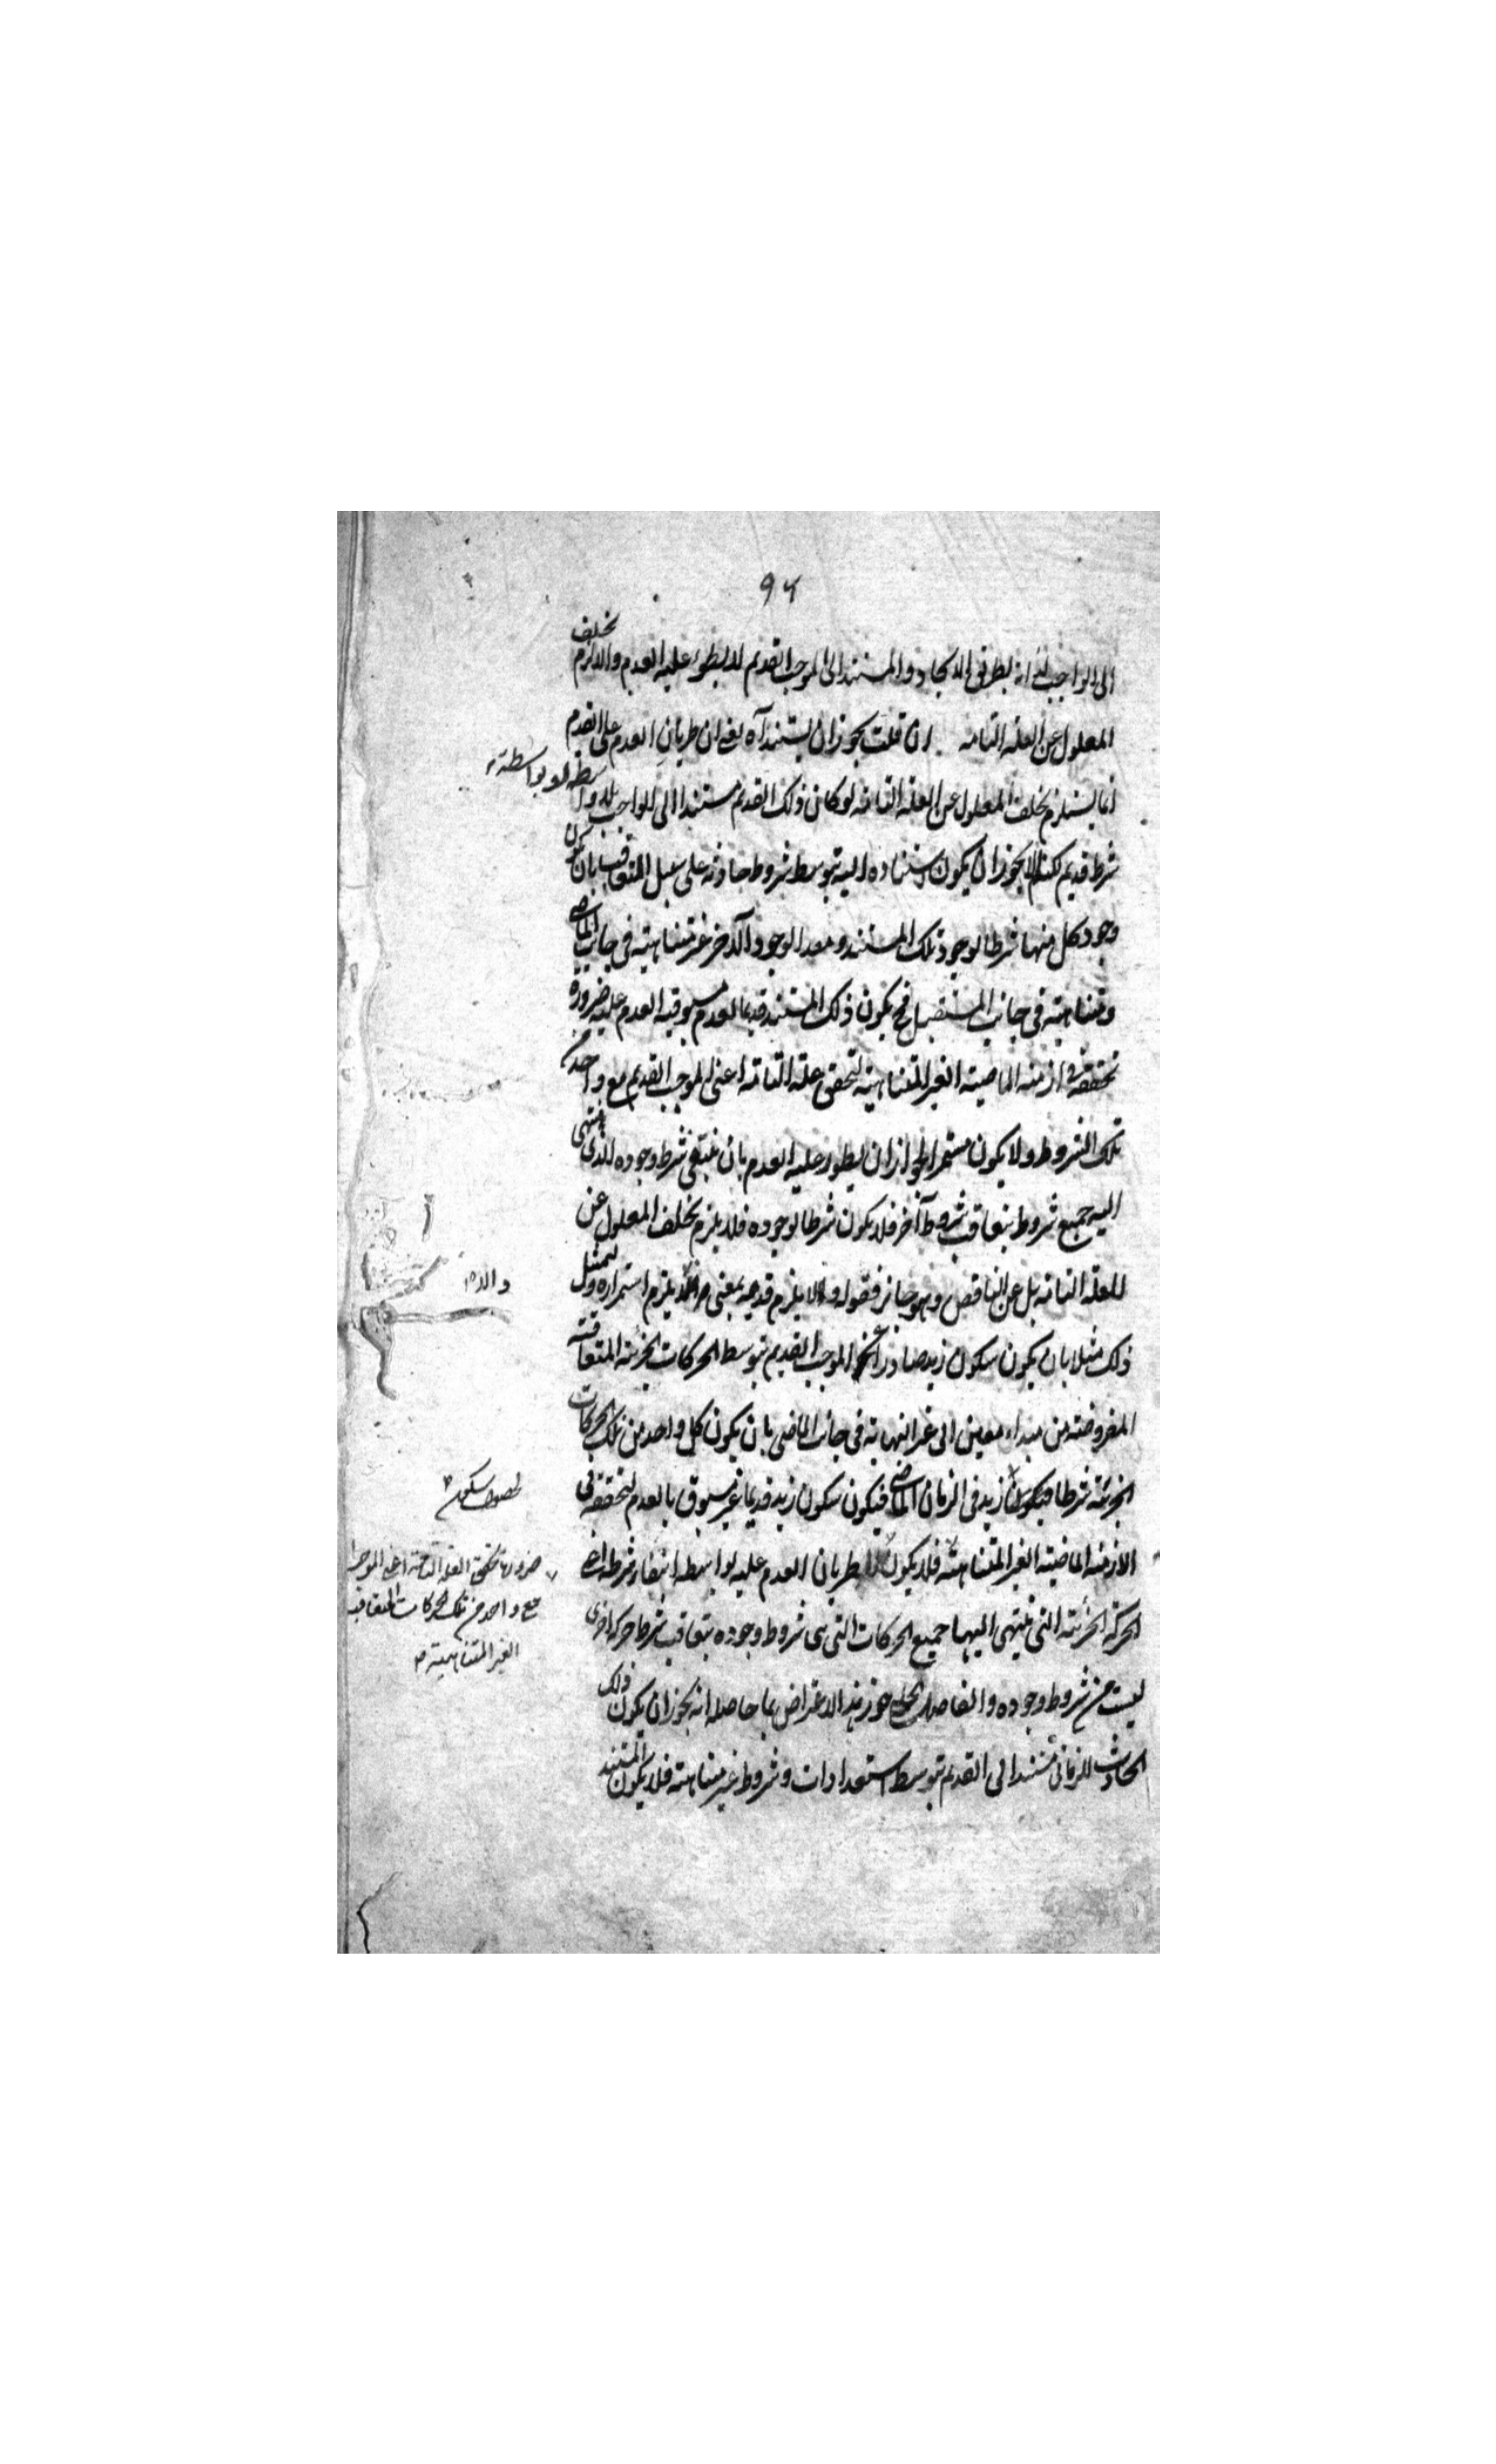 ٩٤
الى الواجب لذاته بطريق الايجاد والمستند الى الموجب القديم لا يطرء عليه العدم والا لزم تخلف
المعلول عن العلة التامة ان قلت يجوز ان يستند آه يعنى ان طريان العدم على القديم
انما يستلزم تخلف المعلول عن العلة التامة لو كان ذلك القديم مستندا الى الواجب بلا واسطة او بواسطة
شرط قديم لكنه لم لا يجوز ان يكون استناده اليه بتوسط شروط حادثة على سبيل التعاقب بان يكون
وجود كل منها شرطا لوجود ذلك المستند ومعدا لوجود الآخر غير متناهية فى جانب الماضى
ومتناهية فى جانب المستقبل فح يكون ذلك المستند قديما لعدم مسبوقية العدم عليه ضرورة
تحققه فى ازمنة الماضية الغير المتناهية لتحقق علته التامة اعنى الموجب القديم مع واحد من
تلك الشروط ولا يكون مستمرا لجواز ان يطرء عليه العدم بان ينتفى شرط وجوده الذى ينتهى
اليه جميع شروط بتعاقب شروط آخر فلا يكون شرطا لوجوده فلا يلزم تخلف المعلول عن
العلة التامة بل عن الناقص وهو جائز فقوله والا يلزم قدمه بمعنى يلزم استمراره وليمثل
ذلك مثلا بان يكون سكون زيد صادرا عن الموجب القديم بتوسط الحركات الجزئية المتعاقبة
المفروضة من مبداء معين الى غير النهاية فى جانب الماضى بان يكون كل واحد من تلك الحركات
الجزئية شرطا زيد فى الزمان الماضى فيكون سكون زيد قديما غير مسبوق بالعدم لتحققه فى
الازمنة الماضية الغير المتناهية فلا يكون طريان العدم عليه بواسطة انتفاء شرطه اعنى
الحركة الجزئية التى ينتهى اليها جميع الحركات التى هى شروط وجوده بتعاقب شرط حركة اخرى
ليست من شروط وجوده والفاضل جوز هذا الاعتراض بما حاصله انه يجوز ان يكون ذلك
الحادث الزمانى مستندا الى القديم بتوسط استعدادات وشروط غير متناهية فلا يكون المستند
لحصول سكون
ضرورة تحقق العلة التامة اعنى الموجب
مع واحد من تلك الحركات المتعاقبة
الغير المتناهية